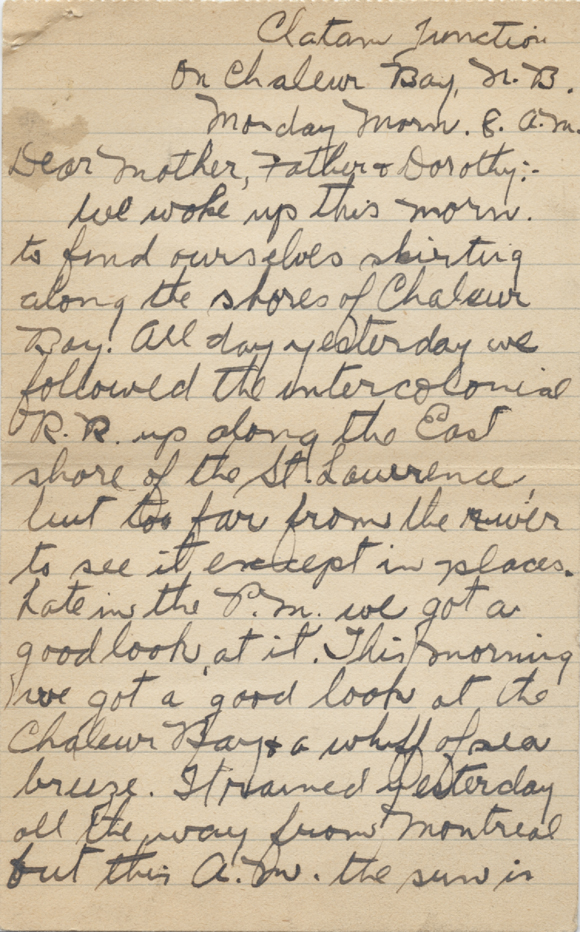 Clatam Junction
On Chaleur Bay, N. B.
Monday Morn. 8. A.M.
Dear Mother, Father & Dorothy:-
We woke up this morn.
to find ourselves skirting
along the shores of Chaleur
Bay. All day yesterday we
followed the intercolonial
R. R. up along the East
shore of the St. Lawrence,
but too far from the river
to see it except in places.
Late in the P.M. we got a
good look at it. This morning
we got a good look at the
Chaleur Bay & a whiff of sea
breeze. It rained yesterday
all the way from Montreal
but this A.M. the sun is